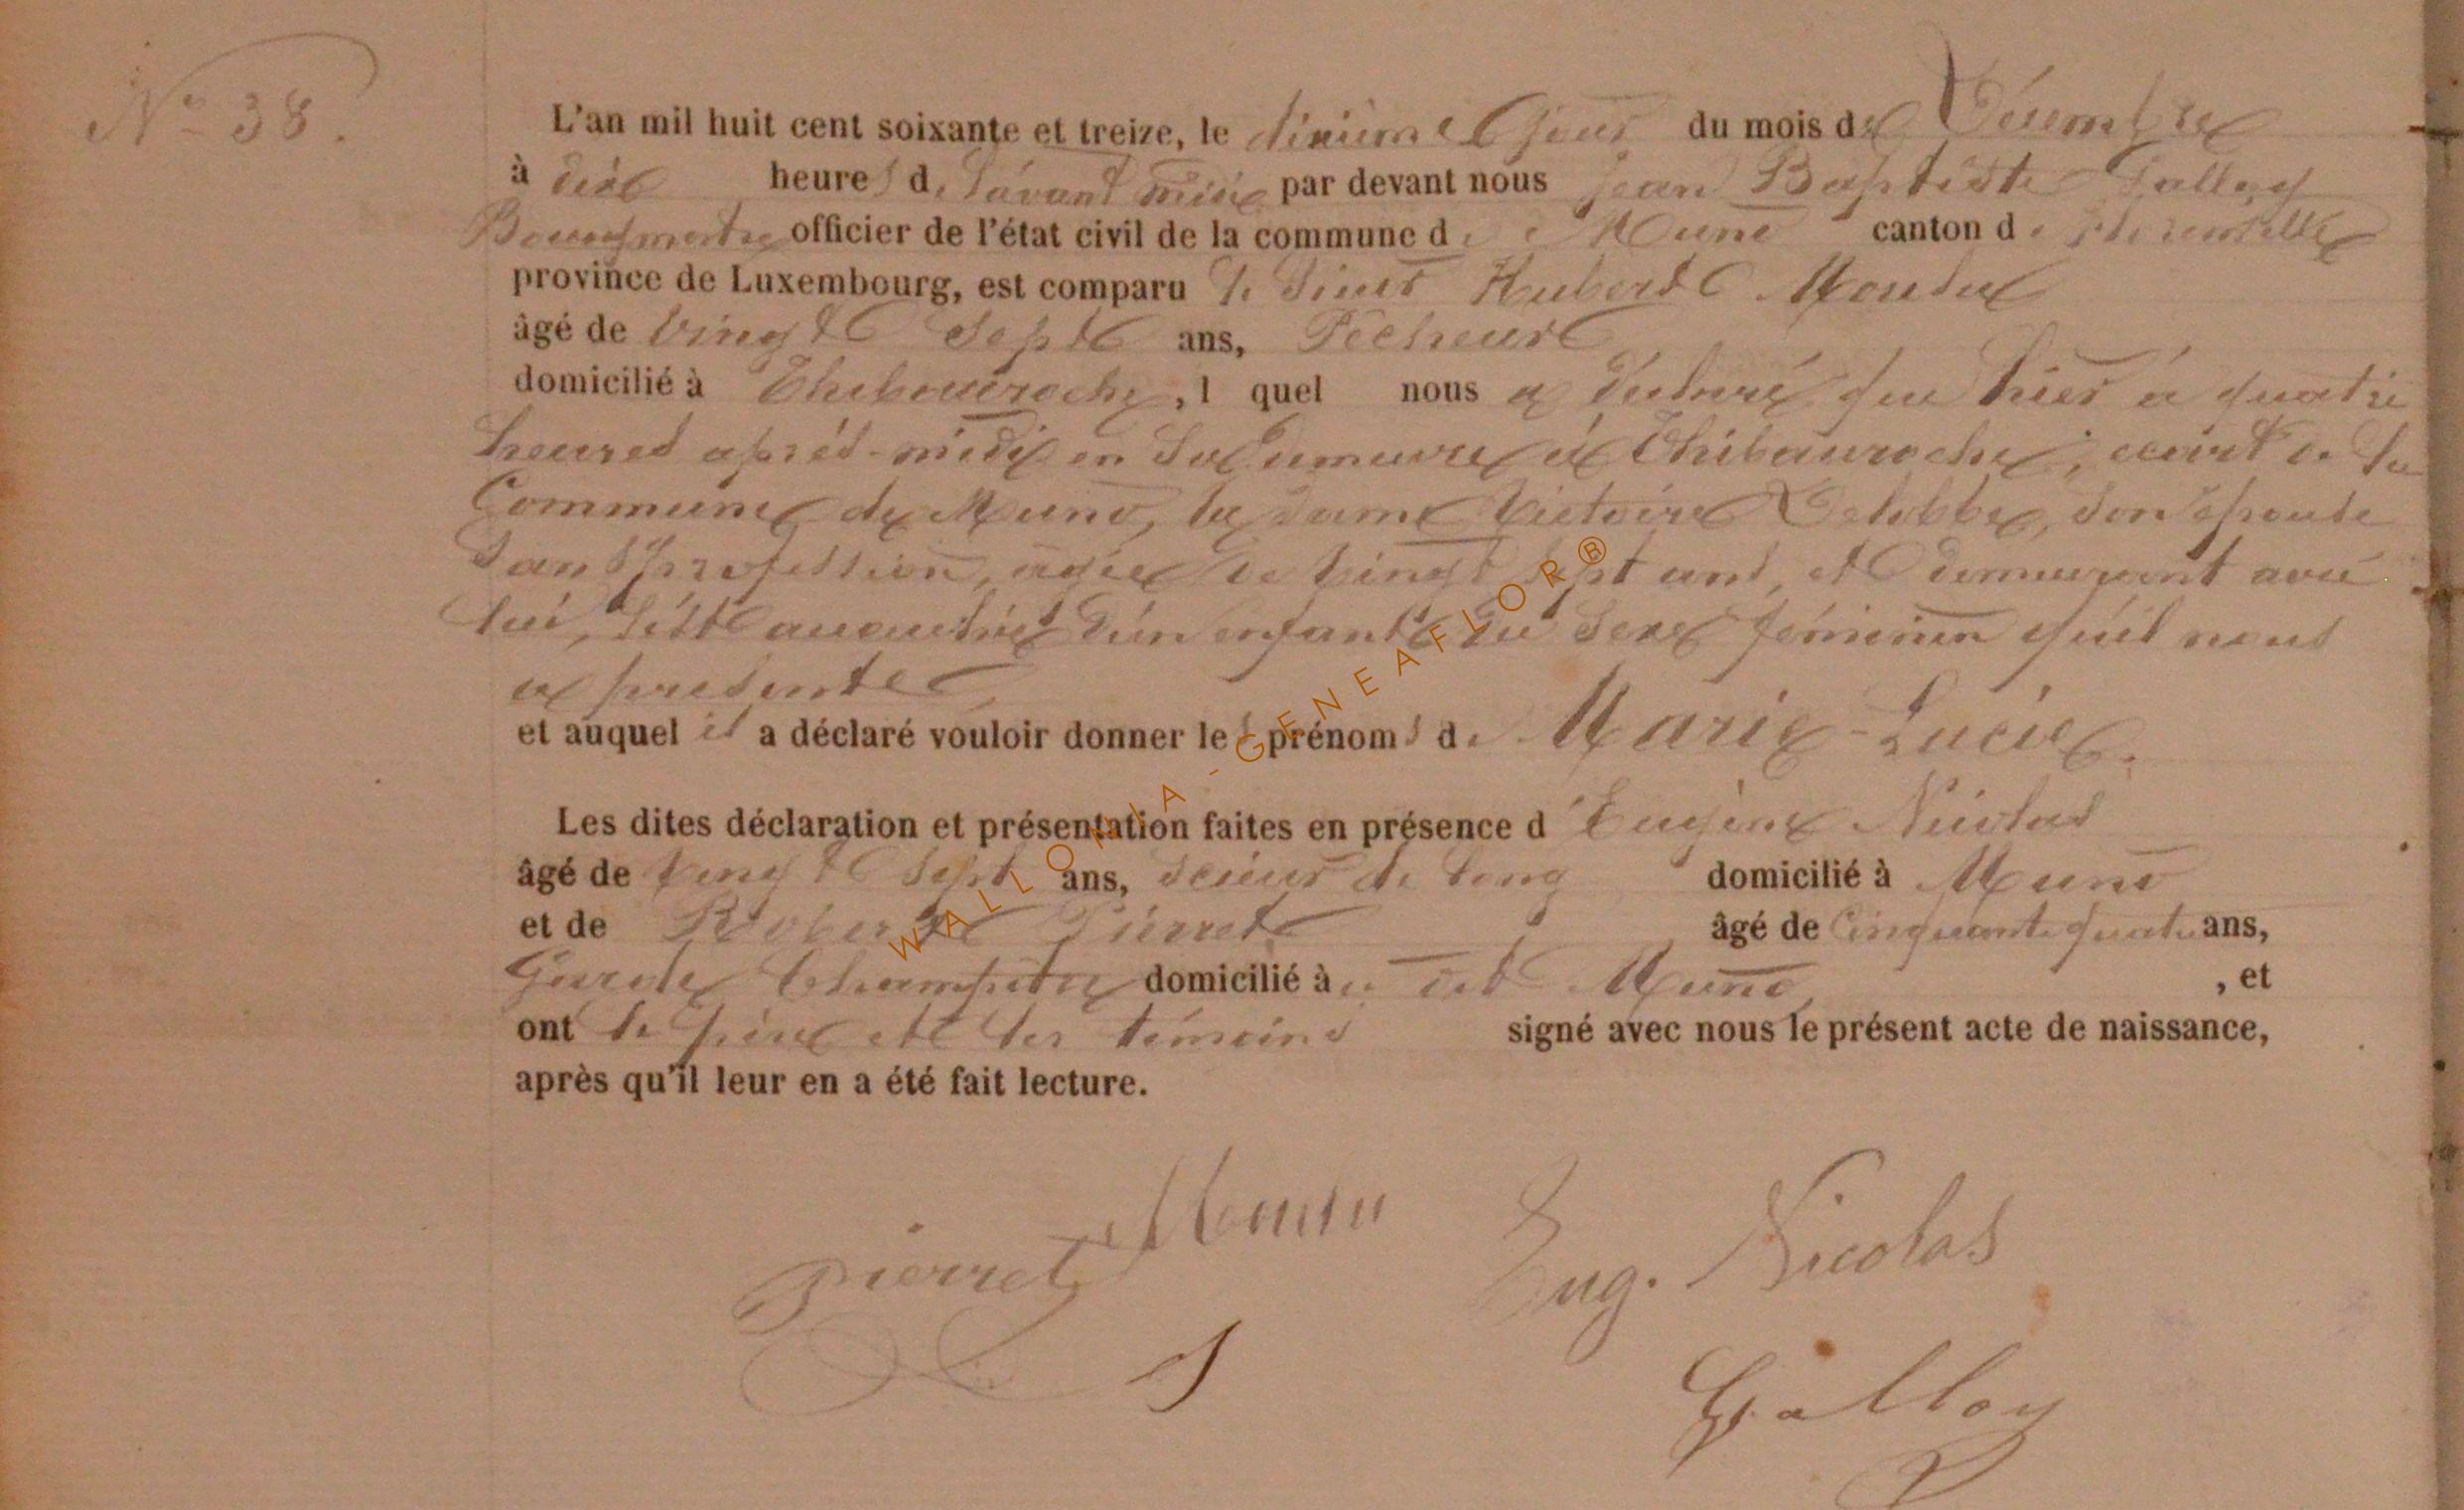 N° 38.
L'an mil huit cent soixante et treize, le dixième jour du mois de Décembre
à dix heures de l'avant midi par devant nous Jean Baptiste Galloy
Bourgmestre officier de l'état civil de la commune de Muno canton de Florenville
province de Luxembourg, est comparu le sieur Hubert
âgé de vingt sept ans, Pêcheur
domicilié à Thibauroche, lequel nous a déclaré que hier à quatre
heures après-midi en sa demeure à Thibauroche, écart de la
Commune de Muno, la dame Victoire Delobbe, son épouse
sans profession, âgée de vingt sept ans, et demeurant avec
lui, s'est accouchée d'un enfant du sexe féminin qu'il nous
a présenté
et auquel il a déclaré vouloir donner les prénoms de Marie-Lucie.
Les dites déclaration et présentation faites en présence d'Eugène Nicolas
âgé de vingt sept ans, scieur de long domicilié à Muno
et de Robert Pierret âgé de Cinquante quatre ans,
Garde Champêtre domicilié à dit Muno, , et
ont le père et les témoins signé avec nous le présent acte de naissance,
après qu'il leur en a été fait lecture.
Pierret
Eug. Nicolas
Galloy
WALLONIA-GENEAFLOR®